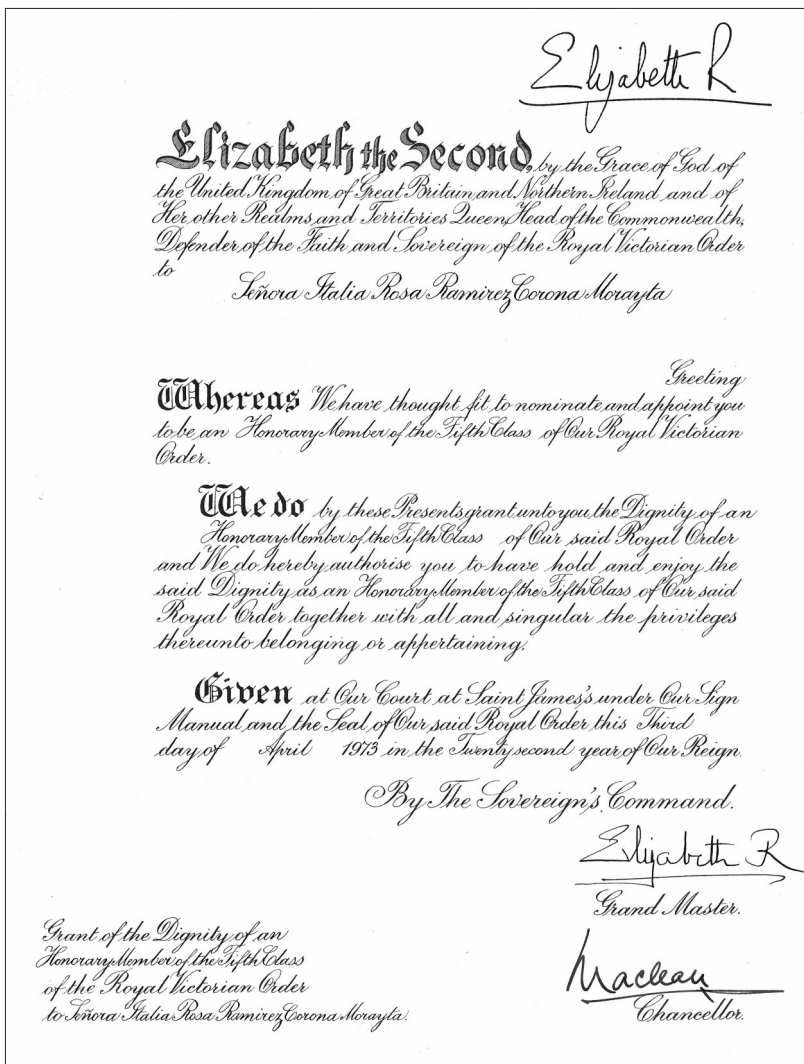 Elizabeth R
Elizabeth the Second, by the Grace of God of
the United Kingdom of Great Britain and Northern Ireland and of
Her other Realms and Territories Queen, Head of the Commonwealth,
Defender of the Faith and Sovereign of the Royal Victorian Order
to
Señora Italia Rosa Ramirez Corona Morayta
Greeting
Whereas We have thought fit to nominate and appoint you
to be an Honorary Member of the Fifth Class of Our Royal Victorian
Order.
We do by these Presents grant unto you the Dignity of an
Honorary Member of the Fifth Class of Our said Royal Order
and We do hereby authorise you to have hold and enjoy the
said Dignity as an Honorary Member of the Fifth Class of Our said
Royal Order together with all and singular the privileges
thereunto belonging or appertaining.
Given at Our Court at Saint James's under Our Sign
Manual and the Seal of Our said Royal Order this Third
day of April 1973 in the Twenty second year of Our Reign.
By The Sovereign's Command.
Elizabeth R
Grand Master.
Grant of the Dignity of an
Honorary Member of the Fifth Class
of the Royal Victorian Order
to Señora Italia Rosa Ramirez Corona Morayta.
Maclean
Chancellor.